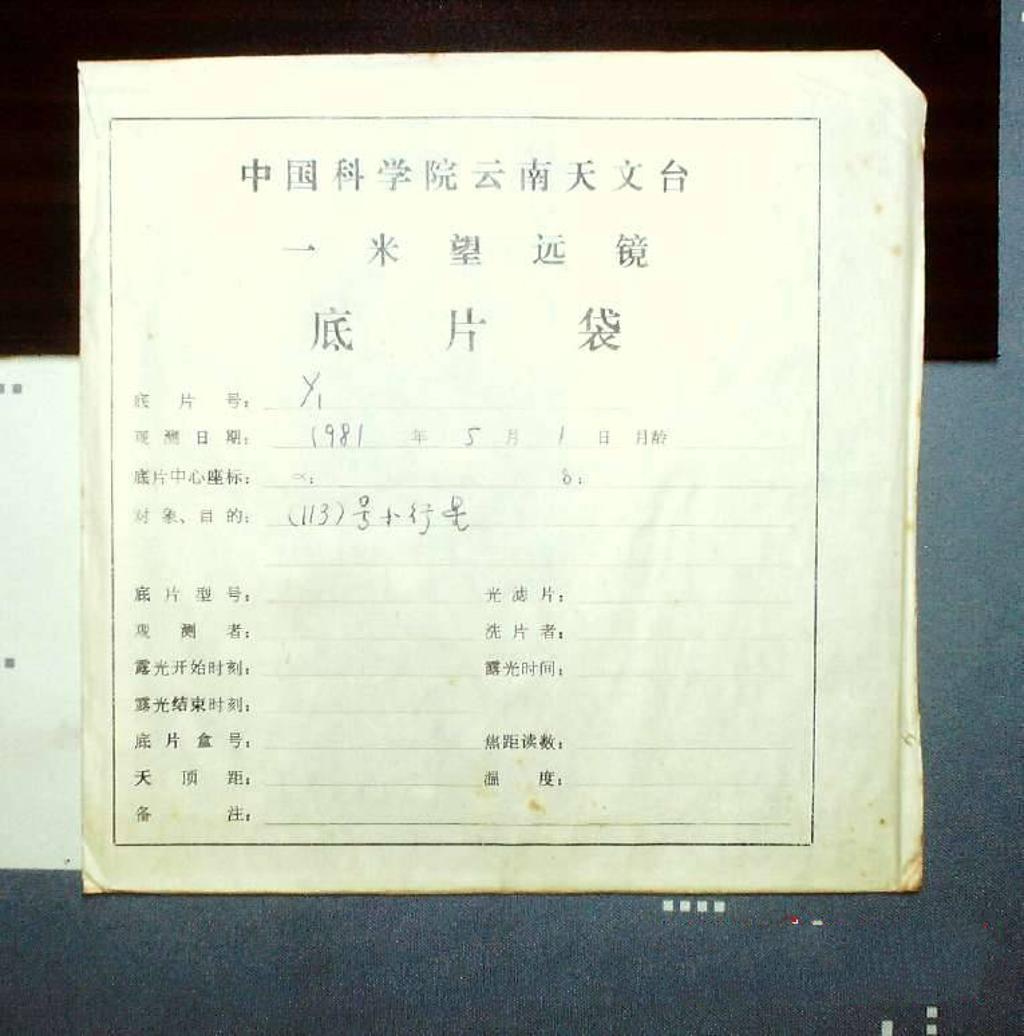 中国科学院云南天文台
一米望远镜
底片袋
底片号: Y1
观测日期: 1981 年 5 月 1 日 月龄
底片中心座标: α: δ:
对象、目的: (113)号小行星
底片型号: 光滤片:
观测者: 洗片者:
露光开始时刻: 露光时间:
露光结束时刻:
底片盒号: 焦距读数:
天顶距: 温度:
备注: